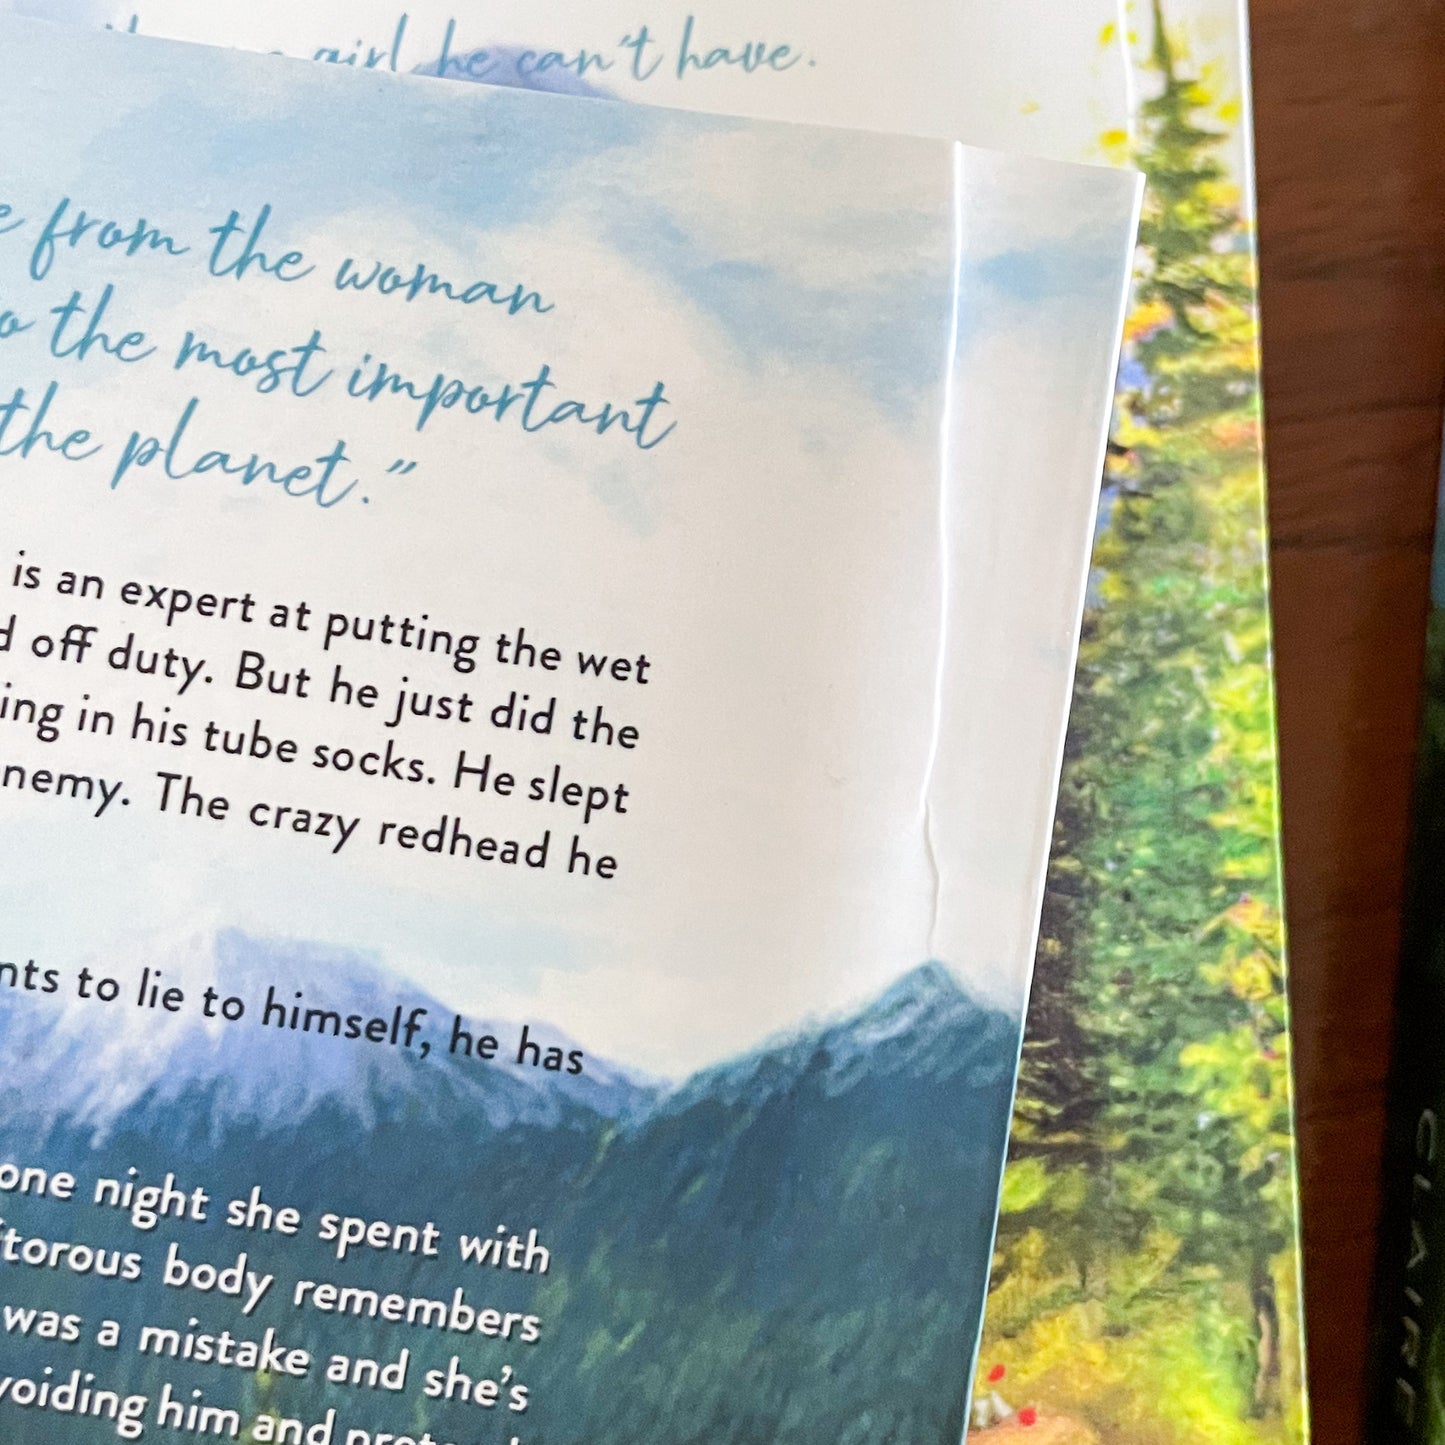 girl he can't have.
from the woman
the most important
the planet."
is an expert at putting the wet
off duty. But he just did the
in his tube socks. He slept
The crazy redhead he
to lie to himself, he has
one night she spent with
body remembers
was a mistake and she's
him and
CLAIRE